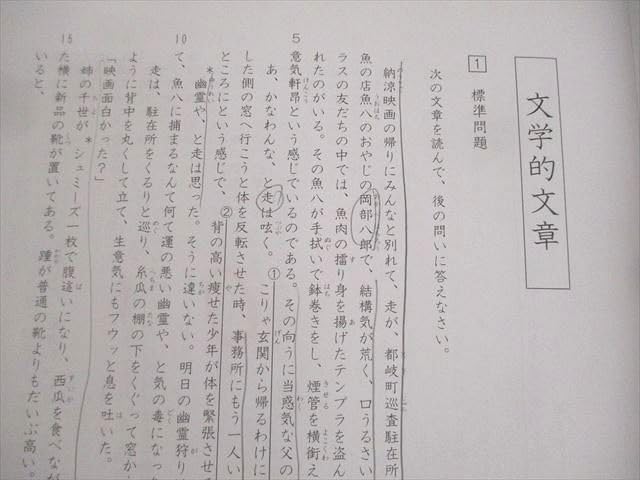 文学的文章
1 標準問題
次の文章を読んで、後の問いに答えなさい。
納涼映画の帰りにみんなと別れて、走が、都岐町巡査駐在所
魚の店魚八のおやじの岡部八郎で、結構気が荒く、口うるさい
ラスの友だちの中では、魚肉の擂り身を揚げたテンプラを盗ん
れたのがいる。その魚八が手拭いで鉢巻きをし、煙管を横銜え
5 意気軒昂という感じでいるのである。その向うに当惑気な父の
あ、かなわんな、と走は呟く。①こりゃ玄関から帰るわけに
した側の窓へ行こうと体を反転させた時、事務所にもう一人い
ところにという感じで、②背の高い痩せた少年が体を緊張させ
*幽霊や、と走は思った。そうに違いない。明日の幽霊狩り
10 て、魚八に捕まるなんて何て運の悪い幽霊や、と気の毒になっ
走は、駐在所をくるりと巡り、糸瓜の棚の下をくぐって窓か
ように背中を丸くして立て、生意気にもフウッと息を吐いた。
「映画面白かった？」
姉の千世が*シュミーズ一枚で腹這いになり、西瓜を食べなが
15 た横に新品の靴が置いてある。踵が普通の靴よりもだいぶ高い。
いると、